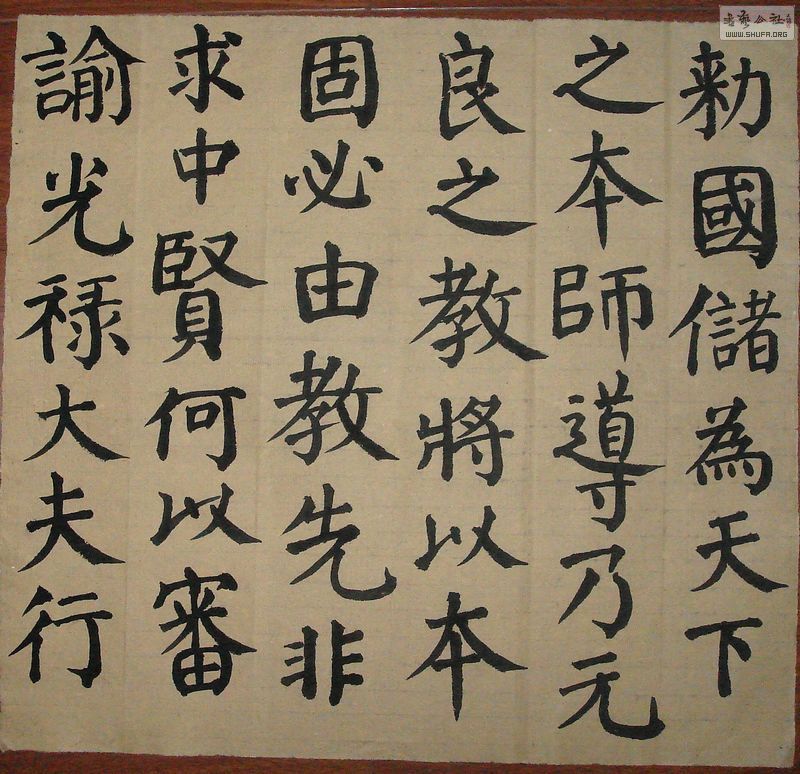 勅國儲為天下
之本師導乃元
良之教將以本
固必由教先非
求中賢何以審
諭光禄大夫行
WWW.SHUFA.ORG